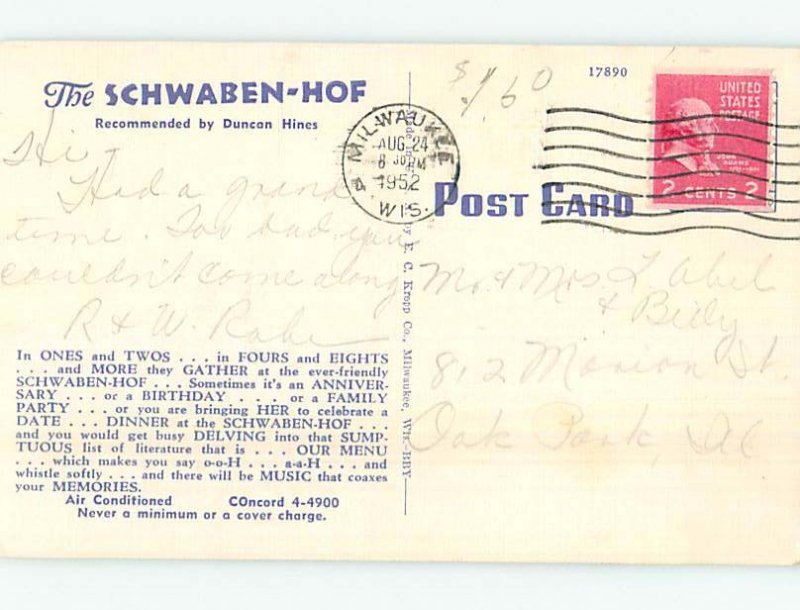 The SCHWABEN-HOF
Recommended by Duncan Hines
Hi -
Had a grand
time. Too bad you
couldn't come along
R & W. Rabe
In ONES and TWOS . . . in FOURS and EIGHTS
. . . and MORE they GATHER at the ever-friendly
SCHWABEN-HOF . . . Sometimes it's an ANNIVER-
SARY . . . or a BIRTHDAY . . . or a FAMILY
PARTY . . . or you are bringing HER to celebrate a
DATE . . . DINNER at the SCHWABEN-HOF . . .
and you would get busy DELVING into that SUMP-
TUOUS list of literature that is . . . OUR MENU
. . . which makes you say o-o-H . . . a-a-H . . . and
whistle softly . . . and there will be MUSIC that coaxes
your MEMORIES.
Air Conditioned COncord 4-4900
Never a minimum or a cover charge.
Made by E. C. Kropp Co., Milwaukee, Wis.
$1.60
17890
MILWAUKEE
AUG 24
1952
WIS.
UNITED
STATES
POSTAGE
JOHN
ADAMS
2 CENTS 2
POST CARD
Mr. & Mrs. L. Abel
& Billy
812 Marion St.
Oak Park, Ill